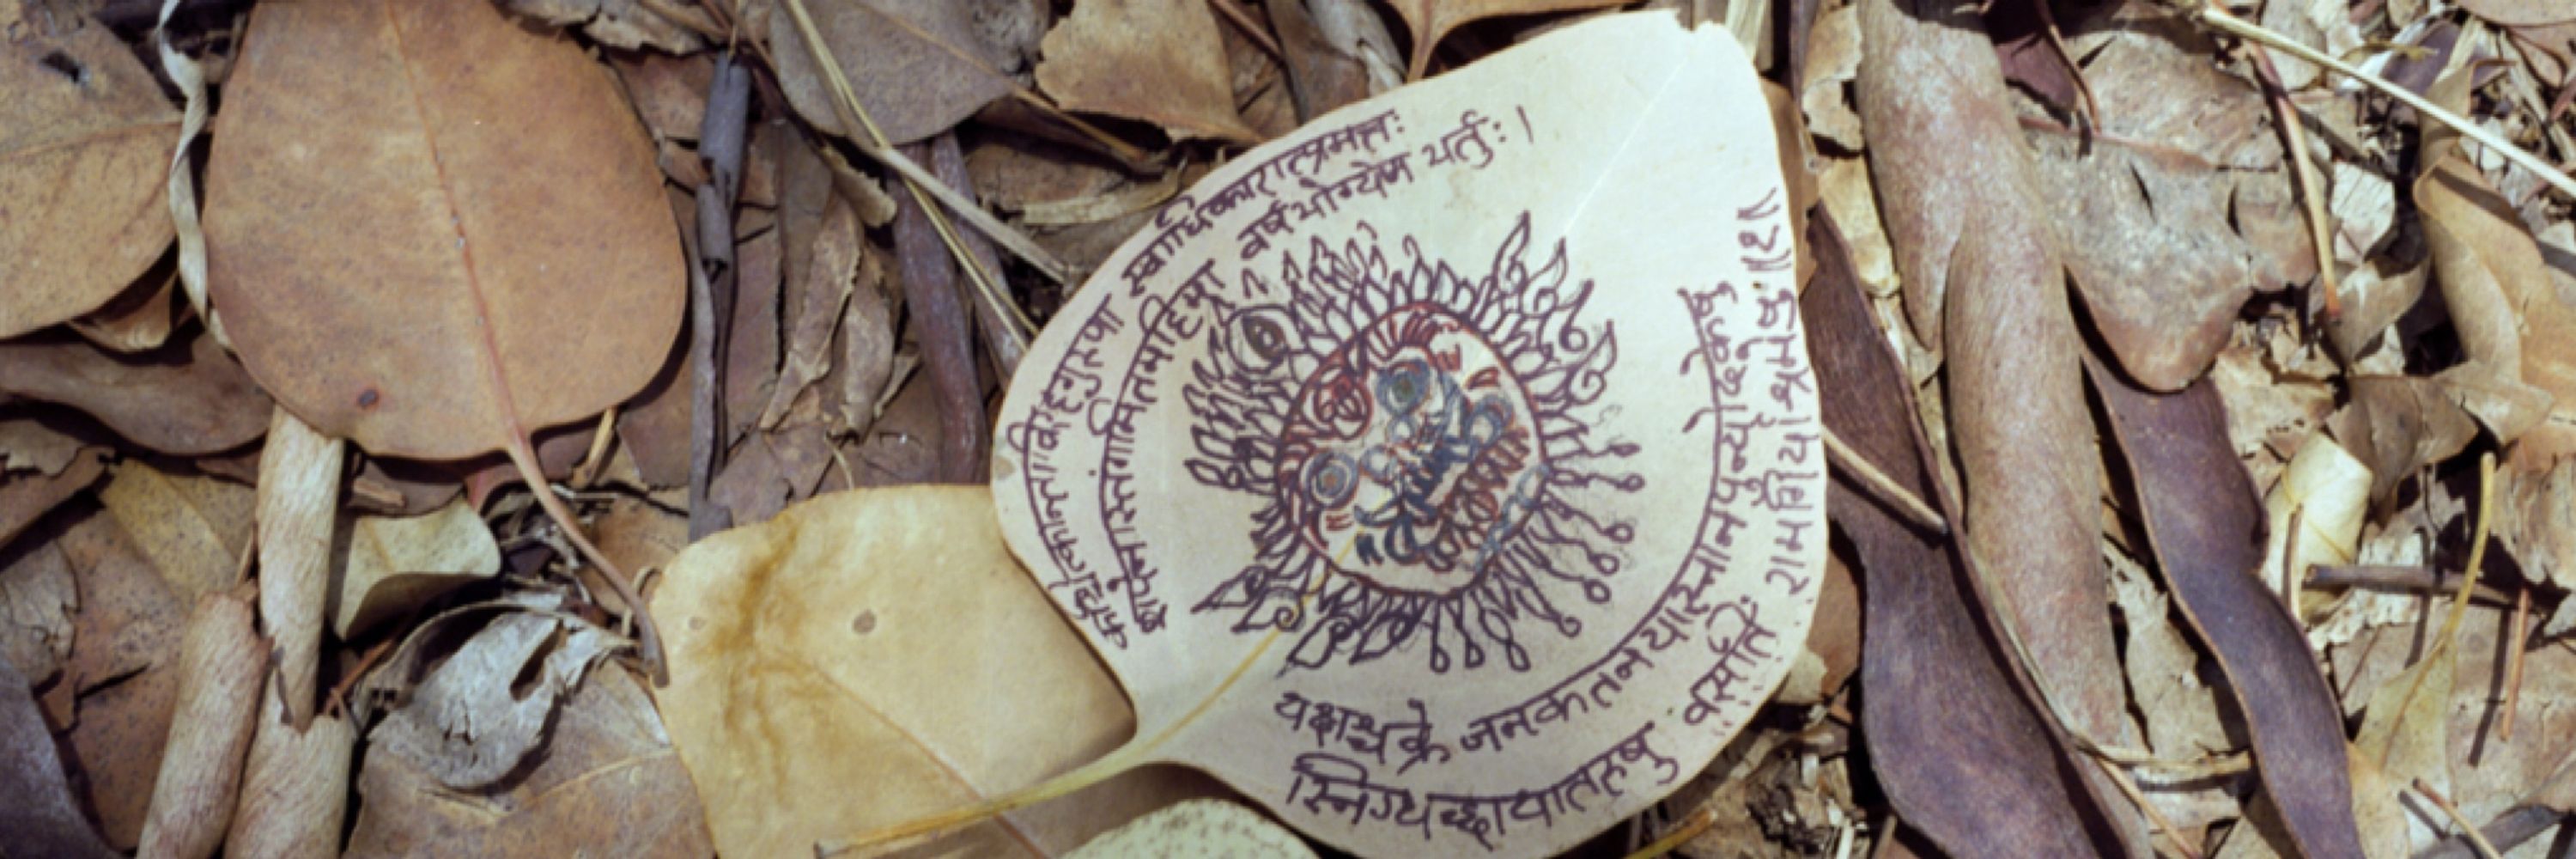 कश्चित्कान्ताविरहगुरुणा स्वाधिकारात्प्रमत्तः
शापेनास्तंगमितमहिमा वर्षभोग्येण भर्तुः ।
यक्षश्चक्रे जनकतनयास्नानपुण्योदकेषु
स्निग्धच्छायातरुषु वसतिं रामगिर्याश्रमेषु ॥१॥